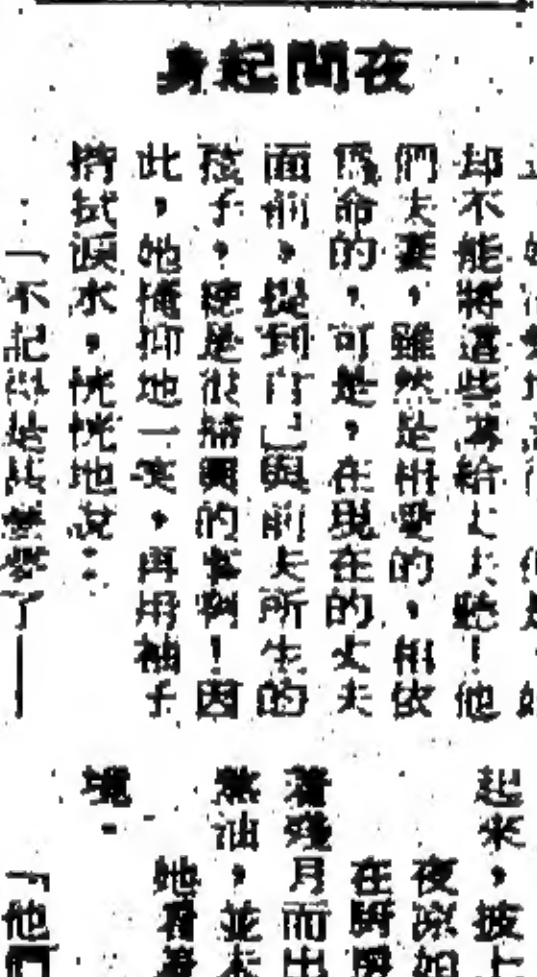 夜間起身
却不能將這些講給丈夫聽！他
們夫妻，雖然是相愛的，相依
爲命的，可是，在現在的丈夫
面前，提到自己與前夫所生的
孩子，總是很掃興的事啊！因
此，她掩抑地一笑，再用袖子
揩拭淚水，恍恍地說：
「不記得是甚麼夢了——
起來，披上
夜涼如
在廚房
着殘月而出
燃油，並未
她看着
境。
『他們